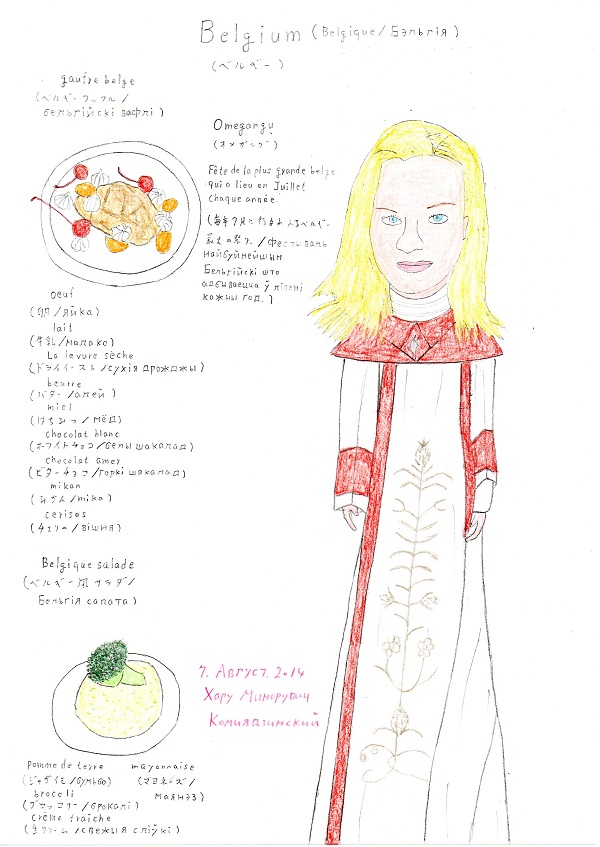 Belgium (Belgique/Бэльгія)
(ベルギー)
gaufre belge
(ベルギーワッフル/
бельгійскі вафлі)
Omegangu
(オメガング)
Fête de la plus grande belge
qui a lieu en Juillet
chaque année.
(毎年7月に行われるベルギー
最大の祭り/Фестываль
найбуйнейшын
Бельгійскі што
адбываецца ў ліпені
кожны год.)
oeuf
(卵/яйка)
lait
(牛乳/малако)
La levure sèche
(ドライイースト/сухія дрожджы)
beurre
(バター/алей)
miel
(はちみつ/мёд)
chocolat blanc
(ホワイトチョコ/белы шакалад)
chocolat amey
(ビターチョコ/горкі шакалад)
mikan
(みかん/mika)
cerises
(チェリー/вішня)
Belgique salade
(ベルギー風サラダ/
Бельгія салата)
7. Август. 2014
Хару Минорувич
Комиядзинский
pomme de terre
(ジャガイモ/бульба)
brocoli
(ブロッコリー/брокалі)
crème fraîche
(生クリーム/свежыя сліўкі)
mayonnaise
(マヨネーズ/
маянэз)